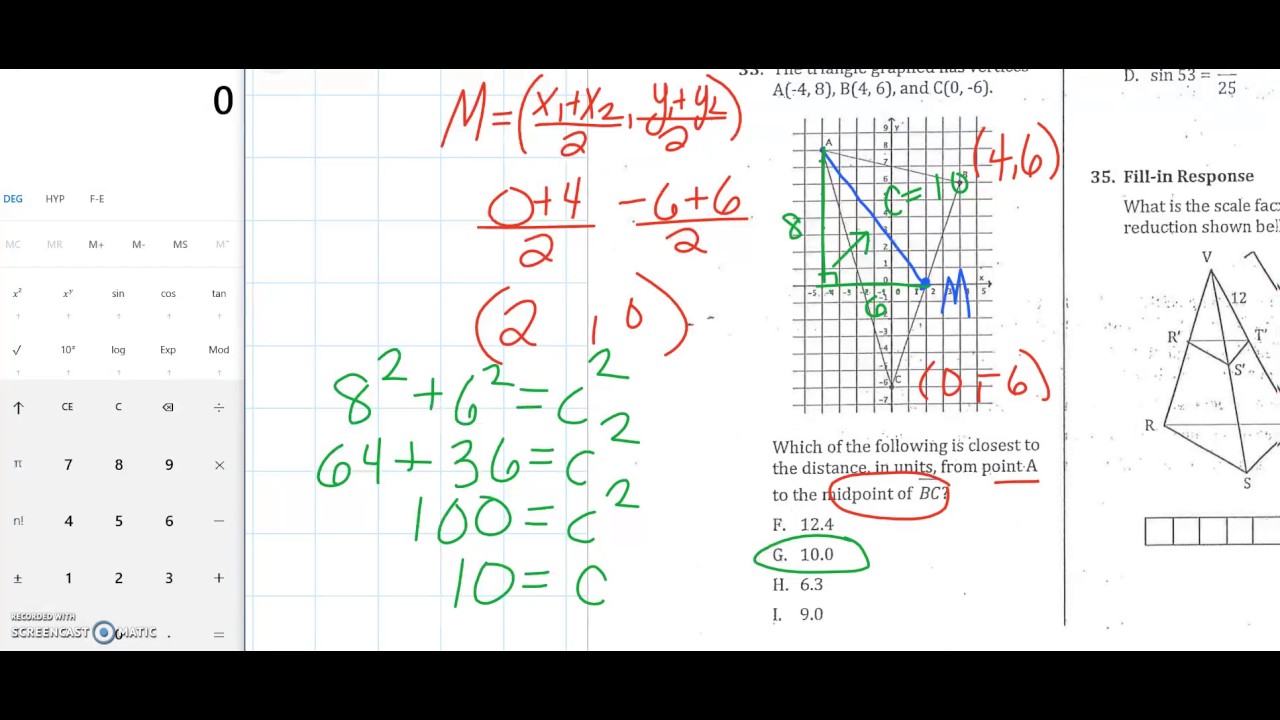 0
DEG HYP F-E
MC MR M+ M- MS M˅
x² xʸ sin cos tan
√ 10ˣ log Exp Mod
↑ CE C ⌫ ÷
π 7 8 9 ×
n! 4 5 6 −
± 1 2 3 +
0 . =
RECORDED WITH
SCREENCAST MATIC
M = (x₁+x₂/2, y₁+y₂/2)
0+4/2 -6+6/2
(2, 0)
8² + 6² = c²
64 + 36 = c²
100 = c²
10 = c
33. The triangle graphed has vertices
A(-4, 8), B(4, 6), and C(0, -6).
(4,6)
A
C = 10
8
6
M
C
(0, -6)
Which of the following is closest to
the distance, in units, from point A
to the midpoint of BC?
F. 12.4
G. 10.0
H. 6.3
I. 9.0
D. sin 53 = 
25
35. Fill-in Response
What is the scale fac
reduction shown bel
V
12
R' T'
S'
R
S